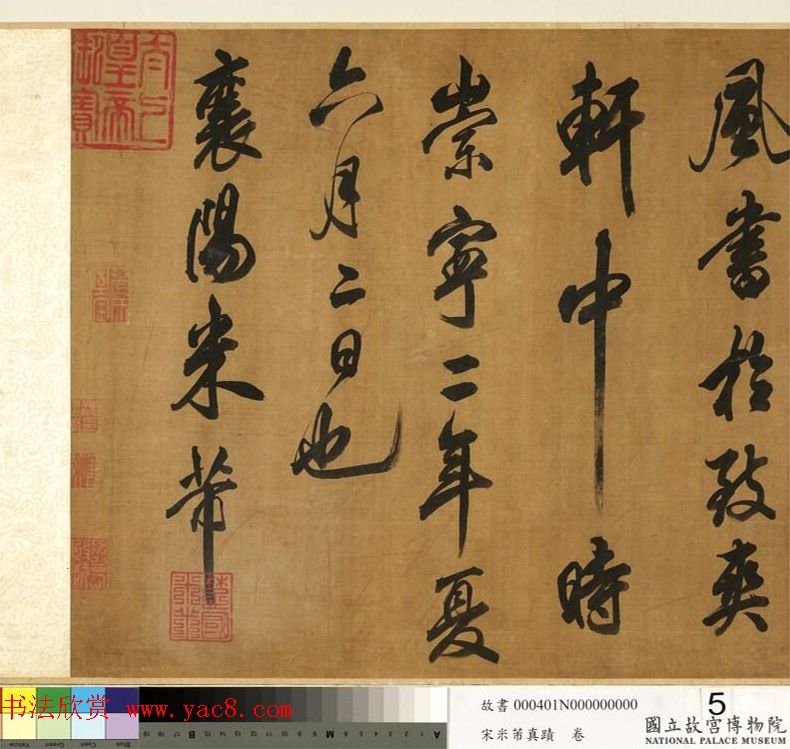 風書於致爽
軒中時
崇寧二年夏
六月二日也
襄陽米芾
書法欣賞 www.yac8.com
故書 000401N000000000
宋米芾真蹟 卷
5
國立故宮博物院
NATIONAL PALACE MUSEUM